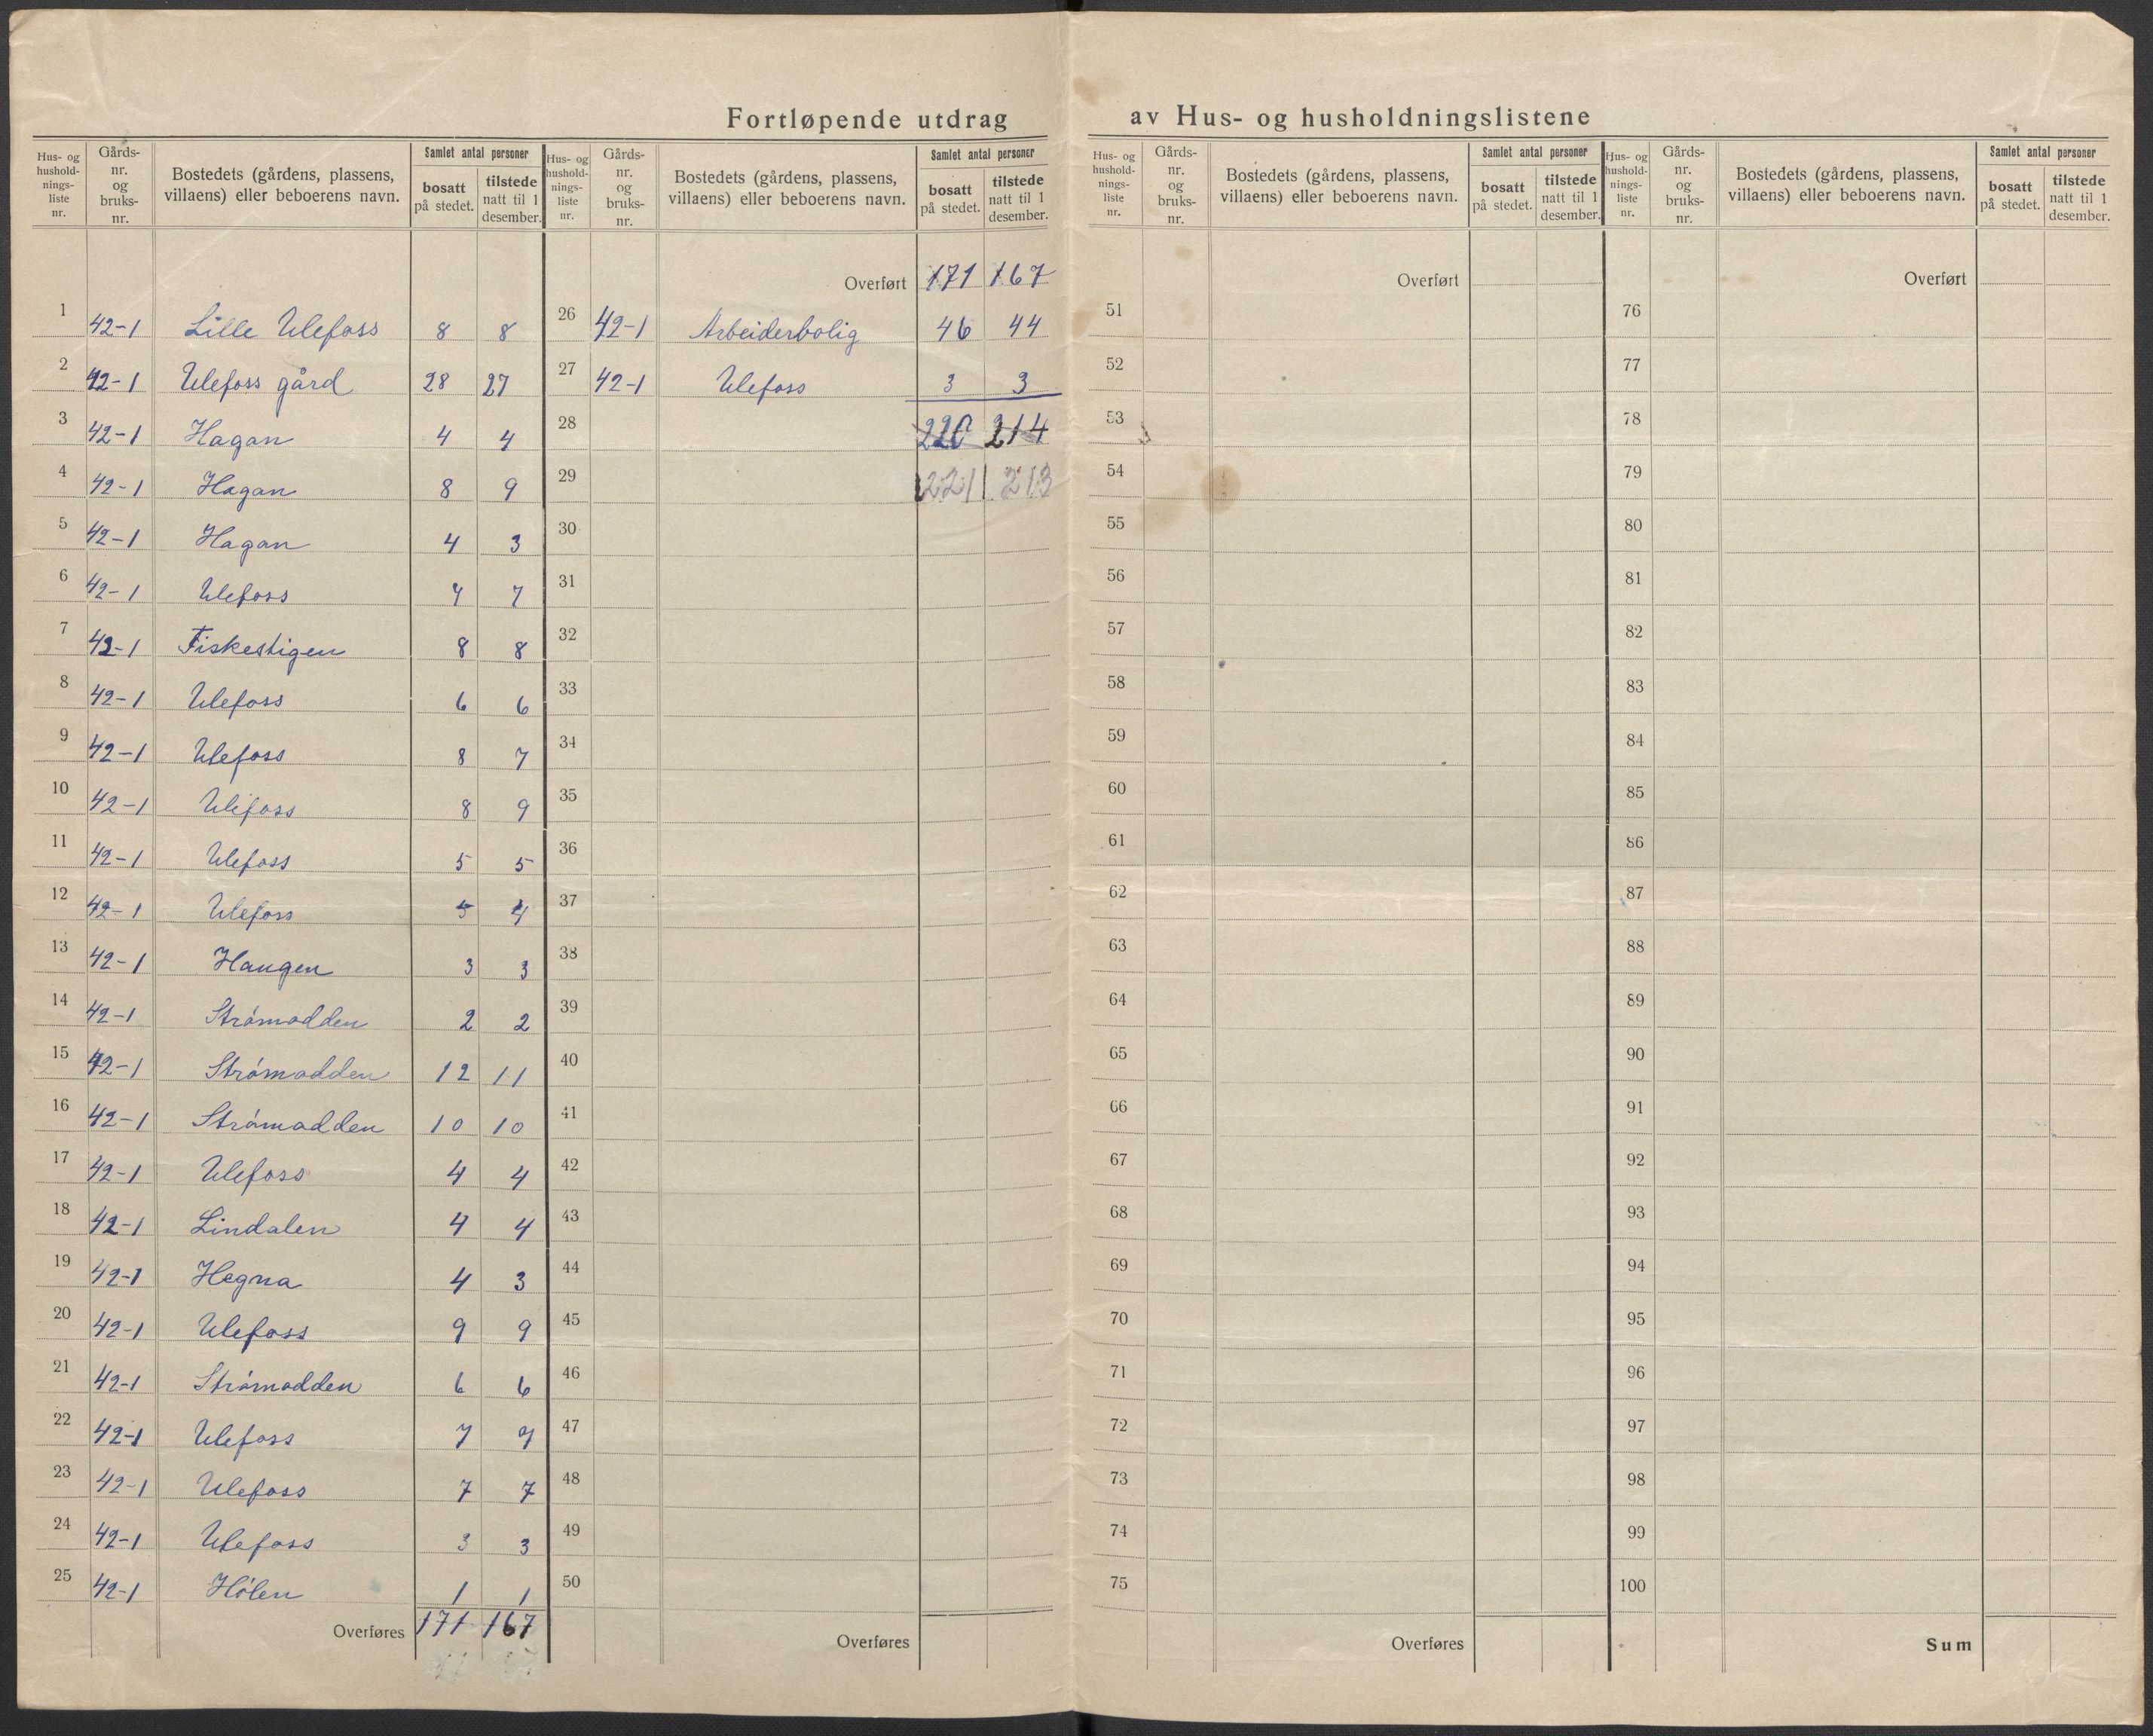 Fortløpende utdrag av Hus- og husholdningslistene
Hus- og hushold-nings-liste nr. Gårds-nr. og bruks-nr. Bostedets (gårdens, plassens, villaens) eller beboerens navn. Samlet antal personer bosatt på stedet. tilstede natt til 1 desember.
1 42-1 Lille Ulefoss 8 8
2 42-1 Ulefoss gård 28 27
3 42-1 Hagan 4 4
4 42-1 Hagan 8 9
5 42-1 Hagan 4 3
6 42-1 Ulefoss 7 7
7 42-1 Fiskestigen 8 8
8 42-1 Ulefoss 6 6
9 42-1 Ulefoss 8 7
10 42-1 Ulefoss 8 9
11 42-1 Ulefoss 5 5
12 42-1 Ulefoss 5 4
13 42-1 Haugen 3 3
14 42-1 Strømodden 2 2
15 42-1 Strømodden 12 11
16 42-1 Strømodden 10 10
17 42-1 Ulefoss 4 4
18 42-1 Lindalen 4 4
19 42-1 Hegna 4 3
20 42-1 Ulefoss 9 9
21 42-1 Strømodden 6 6
22 42-1 Ulefoss 7 7
23 42-1 Ulefoss 7 7
24 42-1 Ulefoss 3 3
25 42-1 Hølen 1 1
Overføres 171 167
Hus- og hushold-nings-liste nr. Gårds-nr. og bruks-nr. Bostedets (gårdens, plassens, villaens) eller beboerens navn. Samlet antal personer bosatt på stedet. tilstede natt til 1 desember.
Overført 171 167
26 42-1 Arbeiderbolig 46 44
27 42-1 Ulefoss 3 3
28 220 214
29 221 213
30
31
32
33
34
35
36
37
38
39
40
41
42
43
44
45
46
47
48
49
50
Overføres
Hus- og hushold-nings-liste nr. Gårds-nr. og bruks-nr. Bostedets (gårdens, plassens, villaens) eller beboerens navn. Samlet antal personer bosatt på stedet. tilstede natt til 1 desember.
Overført
51
52
53
54
55
56
57
58
59
60
61
62
63
64
65
66
67
68
69
70
71
72
73
74
75
Overføres
Hus- og hushold-nings-liste nr. Gårds-nr. og bruks-nr. Bostedets (gårdens, plassens, villaens) eller beboerens navn. Samlet antal personer bosatt på stedet. tilstede natt til 1 desember.
Overført
76
77
78
79
80
81
82
83
84
85
86
87
88
89
90
91
92
93
94
95
96
97
98
99
100
Sum